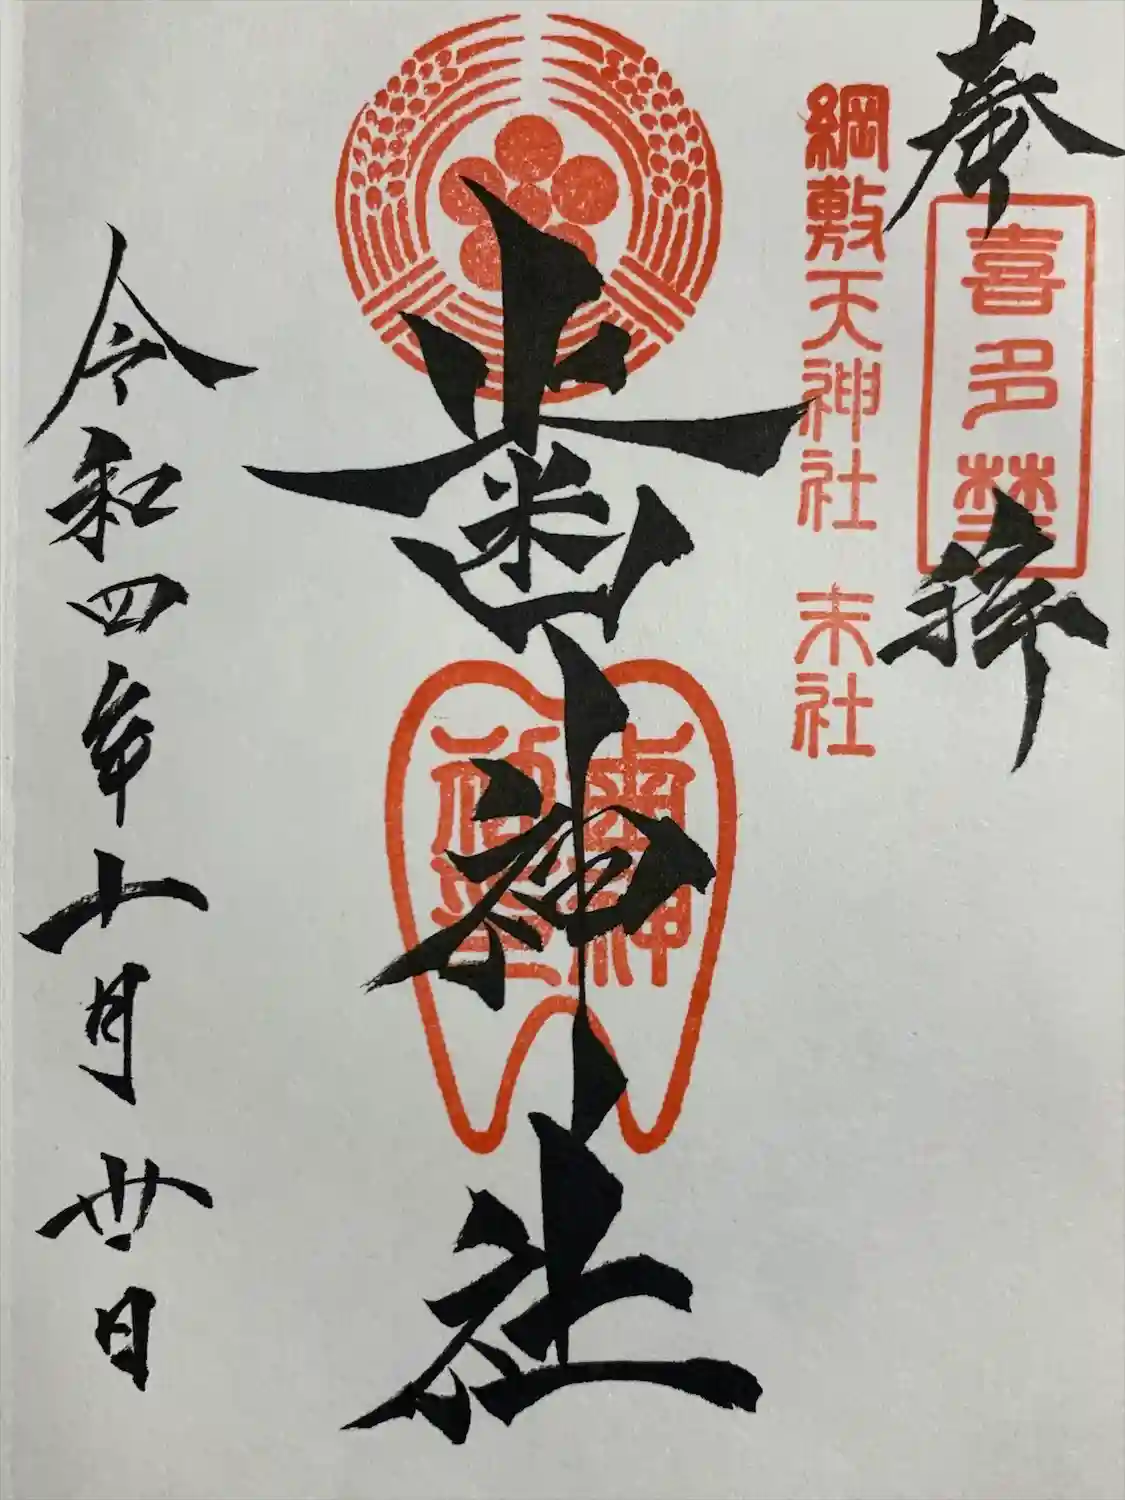 奉拝
喜多埜
綱敷天神社 末社
歯神社
歯神
社璽
令和四年十月廿日